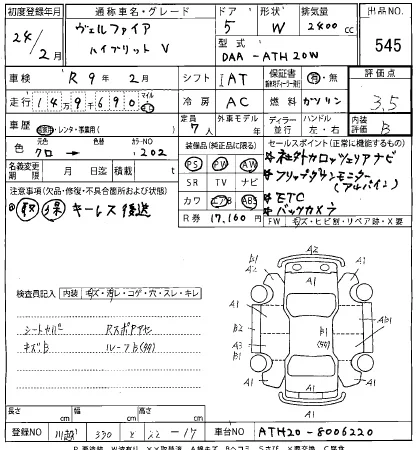 初度登録年月 通称車名・グレード ドア 形状 排気量 出品NO.
24/2月 ヴェルファイア ハイブリット V 5 W 2400cc 545
型式 DAA-ATH20W
車検 R9年2月 シフト IAT 保証書 有・無 評価点
走行 149690 マイル 冷房 AC 燃料 ガソリン 3.5
車歴 自家用・レンタ・事業用( ) 定員 7人 外車モデル 年 ディーラー 並行 ハンドル 左・右 内装評価 B
色 元色 クロ→ 色替 カラーNO 202
装備品(純正品に限る) セールスポイント(正常に機能するもの)
PS PW AW
SR TV ナビ
カワ エアB ABS
R券 17,160円
★社外カロッツェリアナビ
★フリップダウンモニター(アルパイン)
★ETC
★バックカメラ
名義変更期限 月 日 積載量 t
注意事項(欠品・修復・不具合箇所および状態)
取 保 キーレス後送
FW キズ・ヒビ割・リペア跡・X要
検査員記入 内装 キズ・汚レ・コゲ・穴・スレ・キレ
シートカバー
キズB
ルーフB(多数)
A2
B1
A2
A1
A1
A1
B1
B2
A3
B1
A1
B1(多数)
A1
Ab1
A1
A1
A1
長さ cm 幅 cm 高さ cm
登録NO 330 と 22-17 車台NO ATH20-8006220